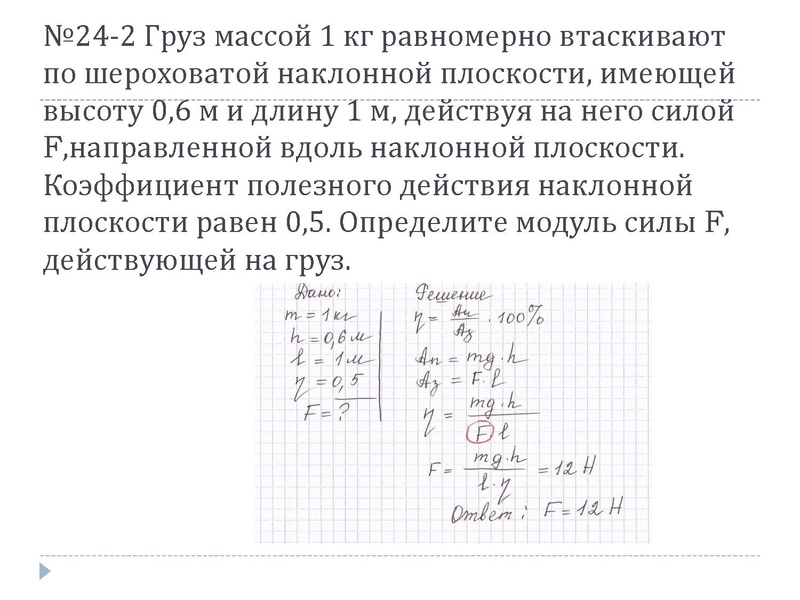 №24-2 Груз массой 1 кг равномерно втаскивают
по шероховатой наклонной плоскости, имеющей
высоту 0,6 м и длину 1 м, действуя на него силой
F,направленной вдоль наклонной плоскости.
Коэффициент полезного действия наклонной
плоскости равен 0,5. Определите модуль силы F,
действующей на груз.
Дано:
m = 1 кг
h = 0,6 м
l = 1 м
η = 0,5
F = ?
Решение
η = Aп / Aз · 100%
Aп = mg·h
Aз = F·l
η = mg·h / F·l
F = mg·h / l·η = 12 Н
Ответ: F = 12 Н